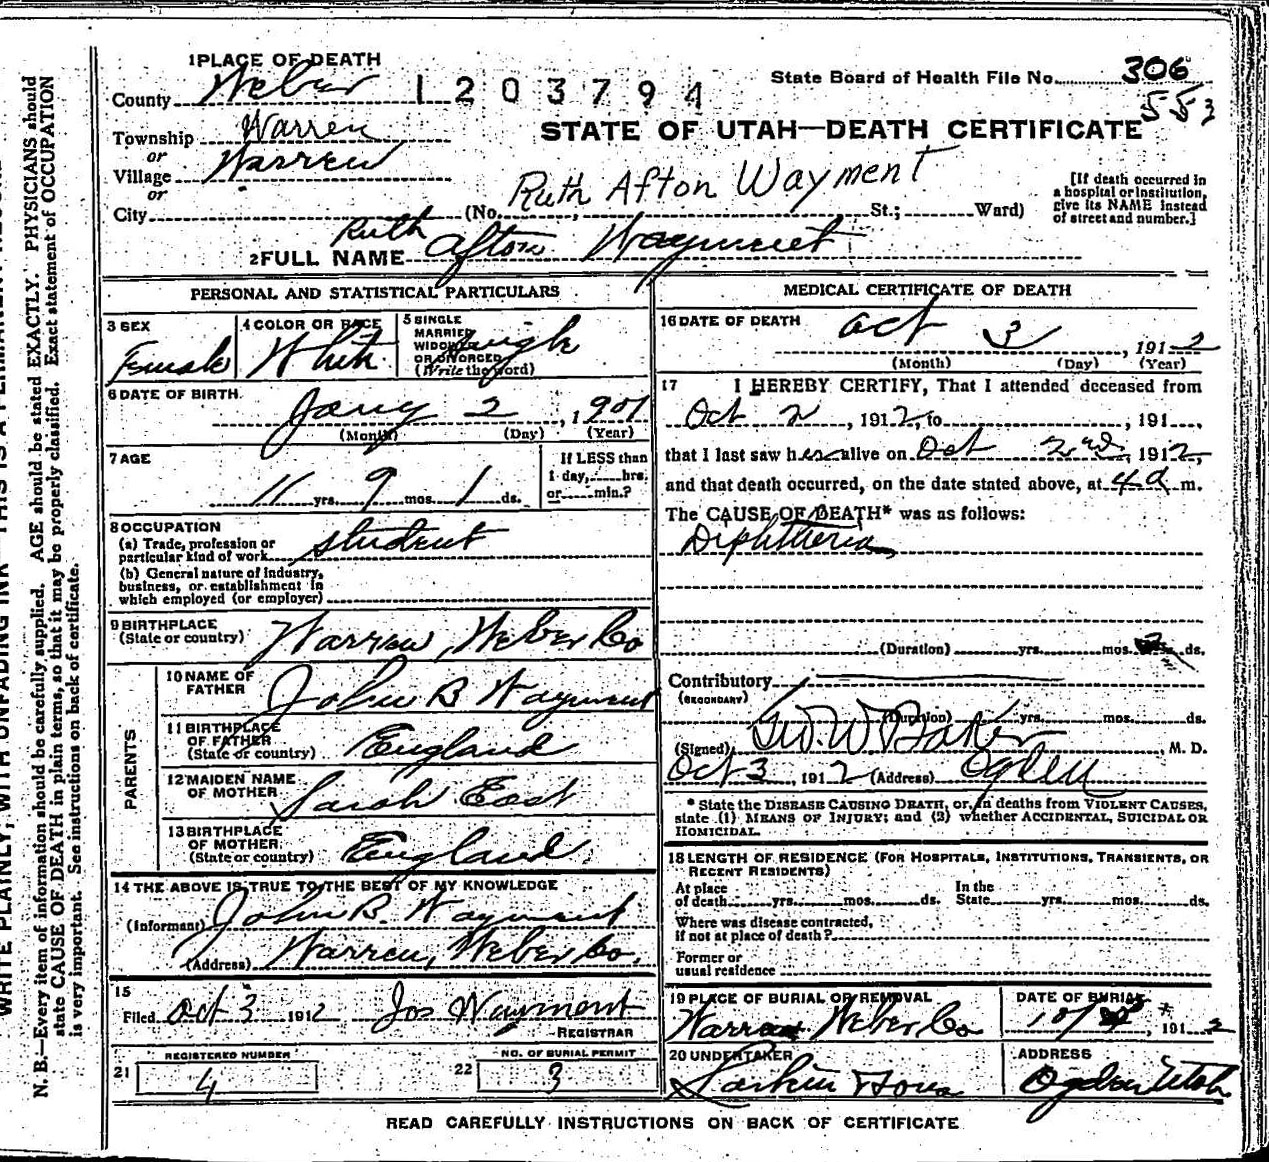 1 PLACE OF DEATH
County Weber 1203794
State Board of Health File No. 306
553
Township Warren
or
Village Warren
or
City (No. St.; Ward)
STATE OF UTAH—DEATH CERTIFICATE
Ruth Afton Wayment
[If death occurred in
a hospital or institution,
give its NAME instead
of street and number.]
Ruth
2 FULL NAME Afton Wayment
PERSONAL AND STATISTICAL PARTICULARS
3 SEX
Female
4 COLOR OR RACE
White
5 SINGLE
MARRIED
WIDOWED
OR DIVORCED
(Write the word)
Single
6 DATE OF BIRTH
Jany 2, 1901
(Month) (Day) (Year)
7 AGE
11 yrs. 9 mos. 1 ds.
If LESS than
1 day, hrs.
or min.?
8 OCCUPATION
(a) Trade, profession or
particular kind of work student
(b) General nature of industry,
business, or establishment in
which employed (or employer)
9 BIRTHPLACE
(State or country) Warren, Weber Co
PARENTS
10 NAME OF
FATHER John B Wayment
11 BIRTHPLACE
OF FATHER
(State or country) England
12 MAIDEN NAME
OF MOTHER Sarah East
13 BIRTHPLACE
OF MOTHER
(State or country) England
14 THE ABOVE IS TRUE TO THE BEST OF MY KNOWLEDGE
(Informant) John B. Wayment
(Address) Warren, Weber Co.
15
Filed Oct 3 1912 Jos Wayment
REGISTRAR
21 REGISTERED NUMBER
4
22 NO. OF BURIAL PERMIT
3
MEDICAL CERTIFICATE OF DEATH
16 DATE OF DEATH Oct 3, 1912
(Month) (Day) (Year)
17 I HEREBY CERTIFY, That I attended deceased from
Oct 2, 1912, to , 191 ,
that I last saw her alive on Oct 2nd, 1912,
and that death occurred, on the date stated above, at 4 a m.
The CAUSE OF DEATH* was as follows:
Diphtheria
(Duration) yrs. mos. ds.
Contributory
(SECONDARY)
(Duration) yrs. mos. ds.
(Signed) Geo. W Baker, M. D.
Oct 3, 1912 (Address) Ogden
* State the DISEASE CAUSING DEATH, or, in deaths from VIOLENT CAUSES,
state (1) MEANS OF INJURY; and (3) whether ACCIDENTAL, SUICIDAL OR
HOMICIDAL.
18 LENGTH OF RESIDENCE (FOR HOSPITALS, INSTITUTIONS, TRANSIENTS, OR
RECENT RESIDENTS)
At place
of death yrs. mos. ds.
In the
State yrs. mos. ds.
Where was disease contracted,
if not at place of death?
Former or
usual residence
19 PLACE OF BURIAL OR REMOVAL
Warren Weber Co
DATE OF BURIAL
10/ , 1912
20 UNDERTAKER
Larkin Sons
ADDRESS
Ogden Utah
READ CAREFULLY INSTRUCTIONS ON BACK OF CERTIFICATE
N. B.—Every item of information should be carefully supplied. AGE should be stated EXACTLY. PHYSICIANS should
state CAUSE OF DEATH in plain terms, so that it may be properly classified. Exact statement of OCCUPATION
is very important. See instructions on back of certificate.
WRITE PLAINLY, WITH UNFADING INK—THIS IS A PERMANENT